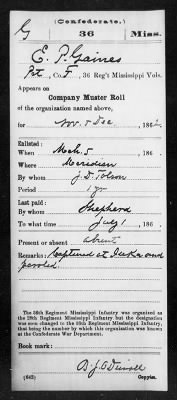 (Confederate.)
G 36 Miss.
E. P. Gaines
Pt, Co. F, 36 Reg't Mississippi Vols.
Appears on
Company Muster Roll
of the organization named above,
for Nov & Dec, 1862.
Enlisted:
When Mch 5, 186 .
Where Meridian
By whom J. D. Tolson
Period 1 yr
Last paid:
By whom Shepherd
To what time July 1, 186 .
Present or absent absent
Remarks: Captured at Iuka and
paroled.
The 36th Regiment Mississippi Infantry was organized as
the 28th Regiment Mississippi Infantry but the designation
was soon changed to the 36th Regiment Mississippi Infantry,
that being the number by which this organization was known at
the Confederate War Department.
Book mark:
(642) Copyist.